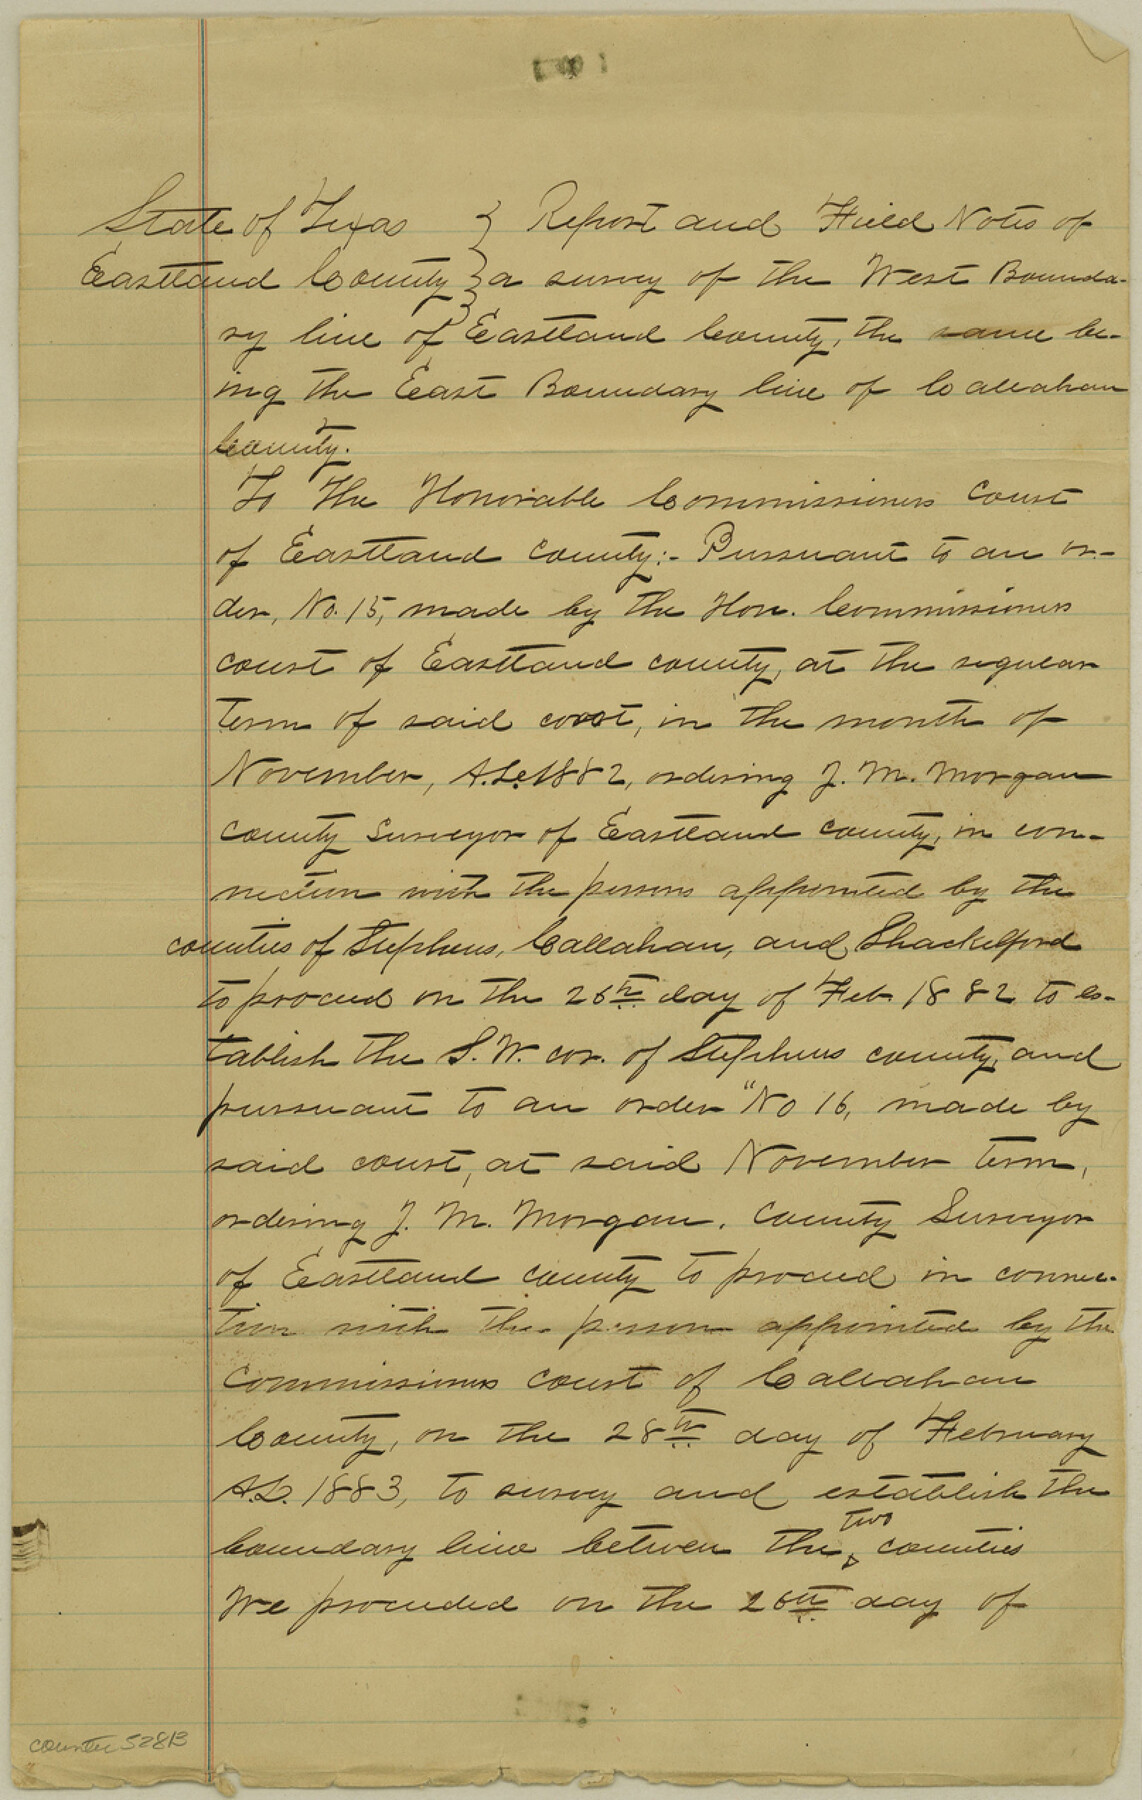 State of Texas } Report and Field Notes of
Eastland County } a survey of the West Bounda-
ry line of Eastland County, the same be-
ing the East Boundary line of Callahan
County.
To The Honorable Commissioners Court
of Eastland County:- Pursuant to an or-
der, No. 15, made by the Hon. Commissioners
court of Eastland county, at the regular
term of said court, in the month of
November, A.D. 1882, ordering J. M. Morgan
County Surveyor of Eastland county, in con-
nection with the persons appointed by the
counties of Stephens, Callahan, and Shackelford
to proceed on the 26th day of Feb. 1882 to es-
tablish the S. W. cor. of Stephens county, and
pursuant to an order "No 16, made by
said court, at said November term,
ordering J. M. Morgan. County Surveyor
of Eastland county to proceed in connec-
tion with the person appointed by the
Commissioners Court of Callahan
County, on the 28th day of February
A.D. 1883, to survey and establish the
boundary line between the two counties
We proceeded on the 26th day of
counter 528B